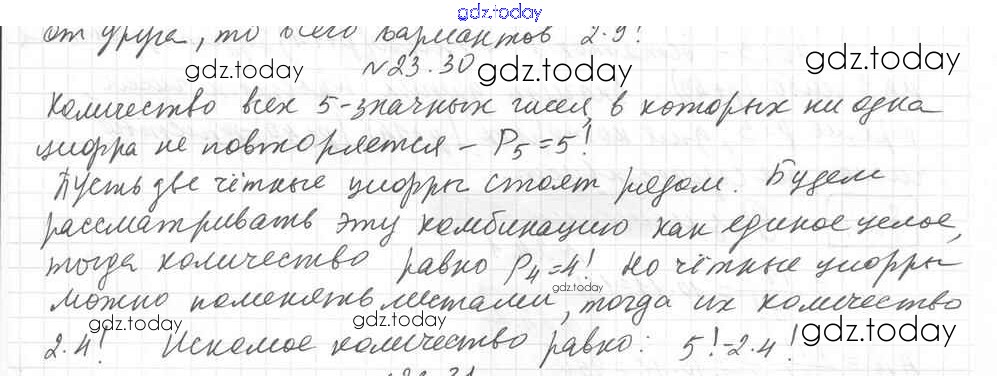 gdz.today
от друга, то всего вариантов 2·9!
№23.30
gdz.today
gdz.today
Количество всех 5-значных чисел, в которых ни одна
цифра не повторяется – P₅=5!
gdz.today
gdz.today
Пусть две чётные цифры стоят рядом. Будем
рассматривать эту комбинацию как единое целое,
тогда количество равно P₄=4! Но чётные цифры
gdz.today
можно поменять местами, тогда их количество
gdz.today
gdz.today
gdz.today
2·4! Искомое количество равно: 5!-2·4!